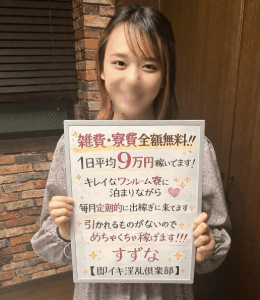 雑費・寮費全額無料!!
1日平均9万円稼いでます!
キレイなワンルーム寮に
泊まりながら
毎月定期的に出稼ぎに来てます
引かれるものがないので
めちゃくちゃ稼げます!!!
すずな
【即イキ淫乱倶楽部】